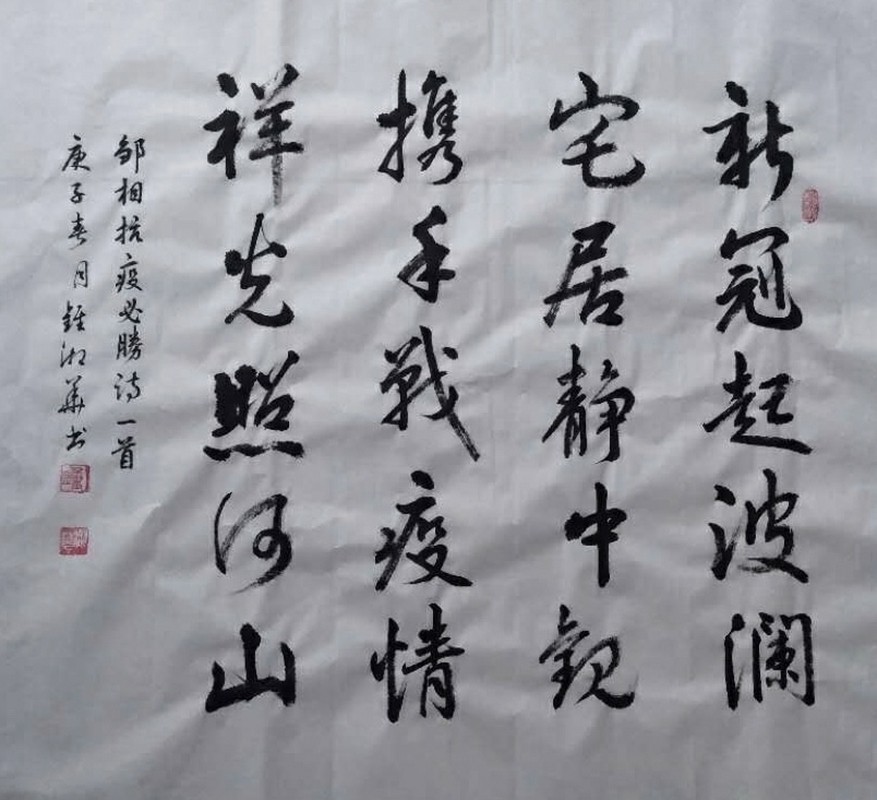 新冠起波澜
宅居静中観
携手戰疫情
祥光照河山
邹相抗疫必勝诗一首
庚子春月鍾湘華书